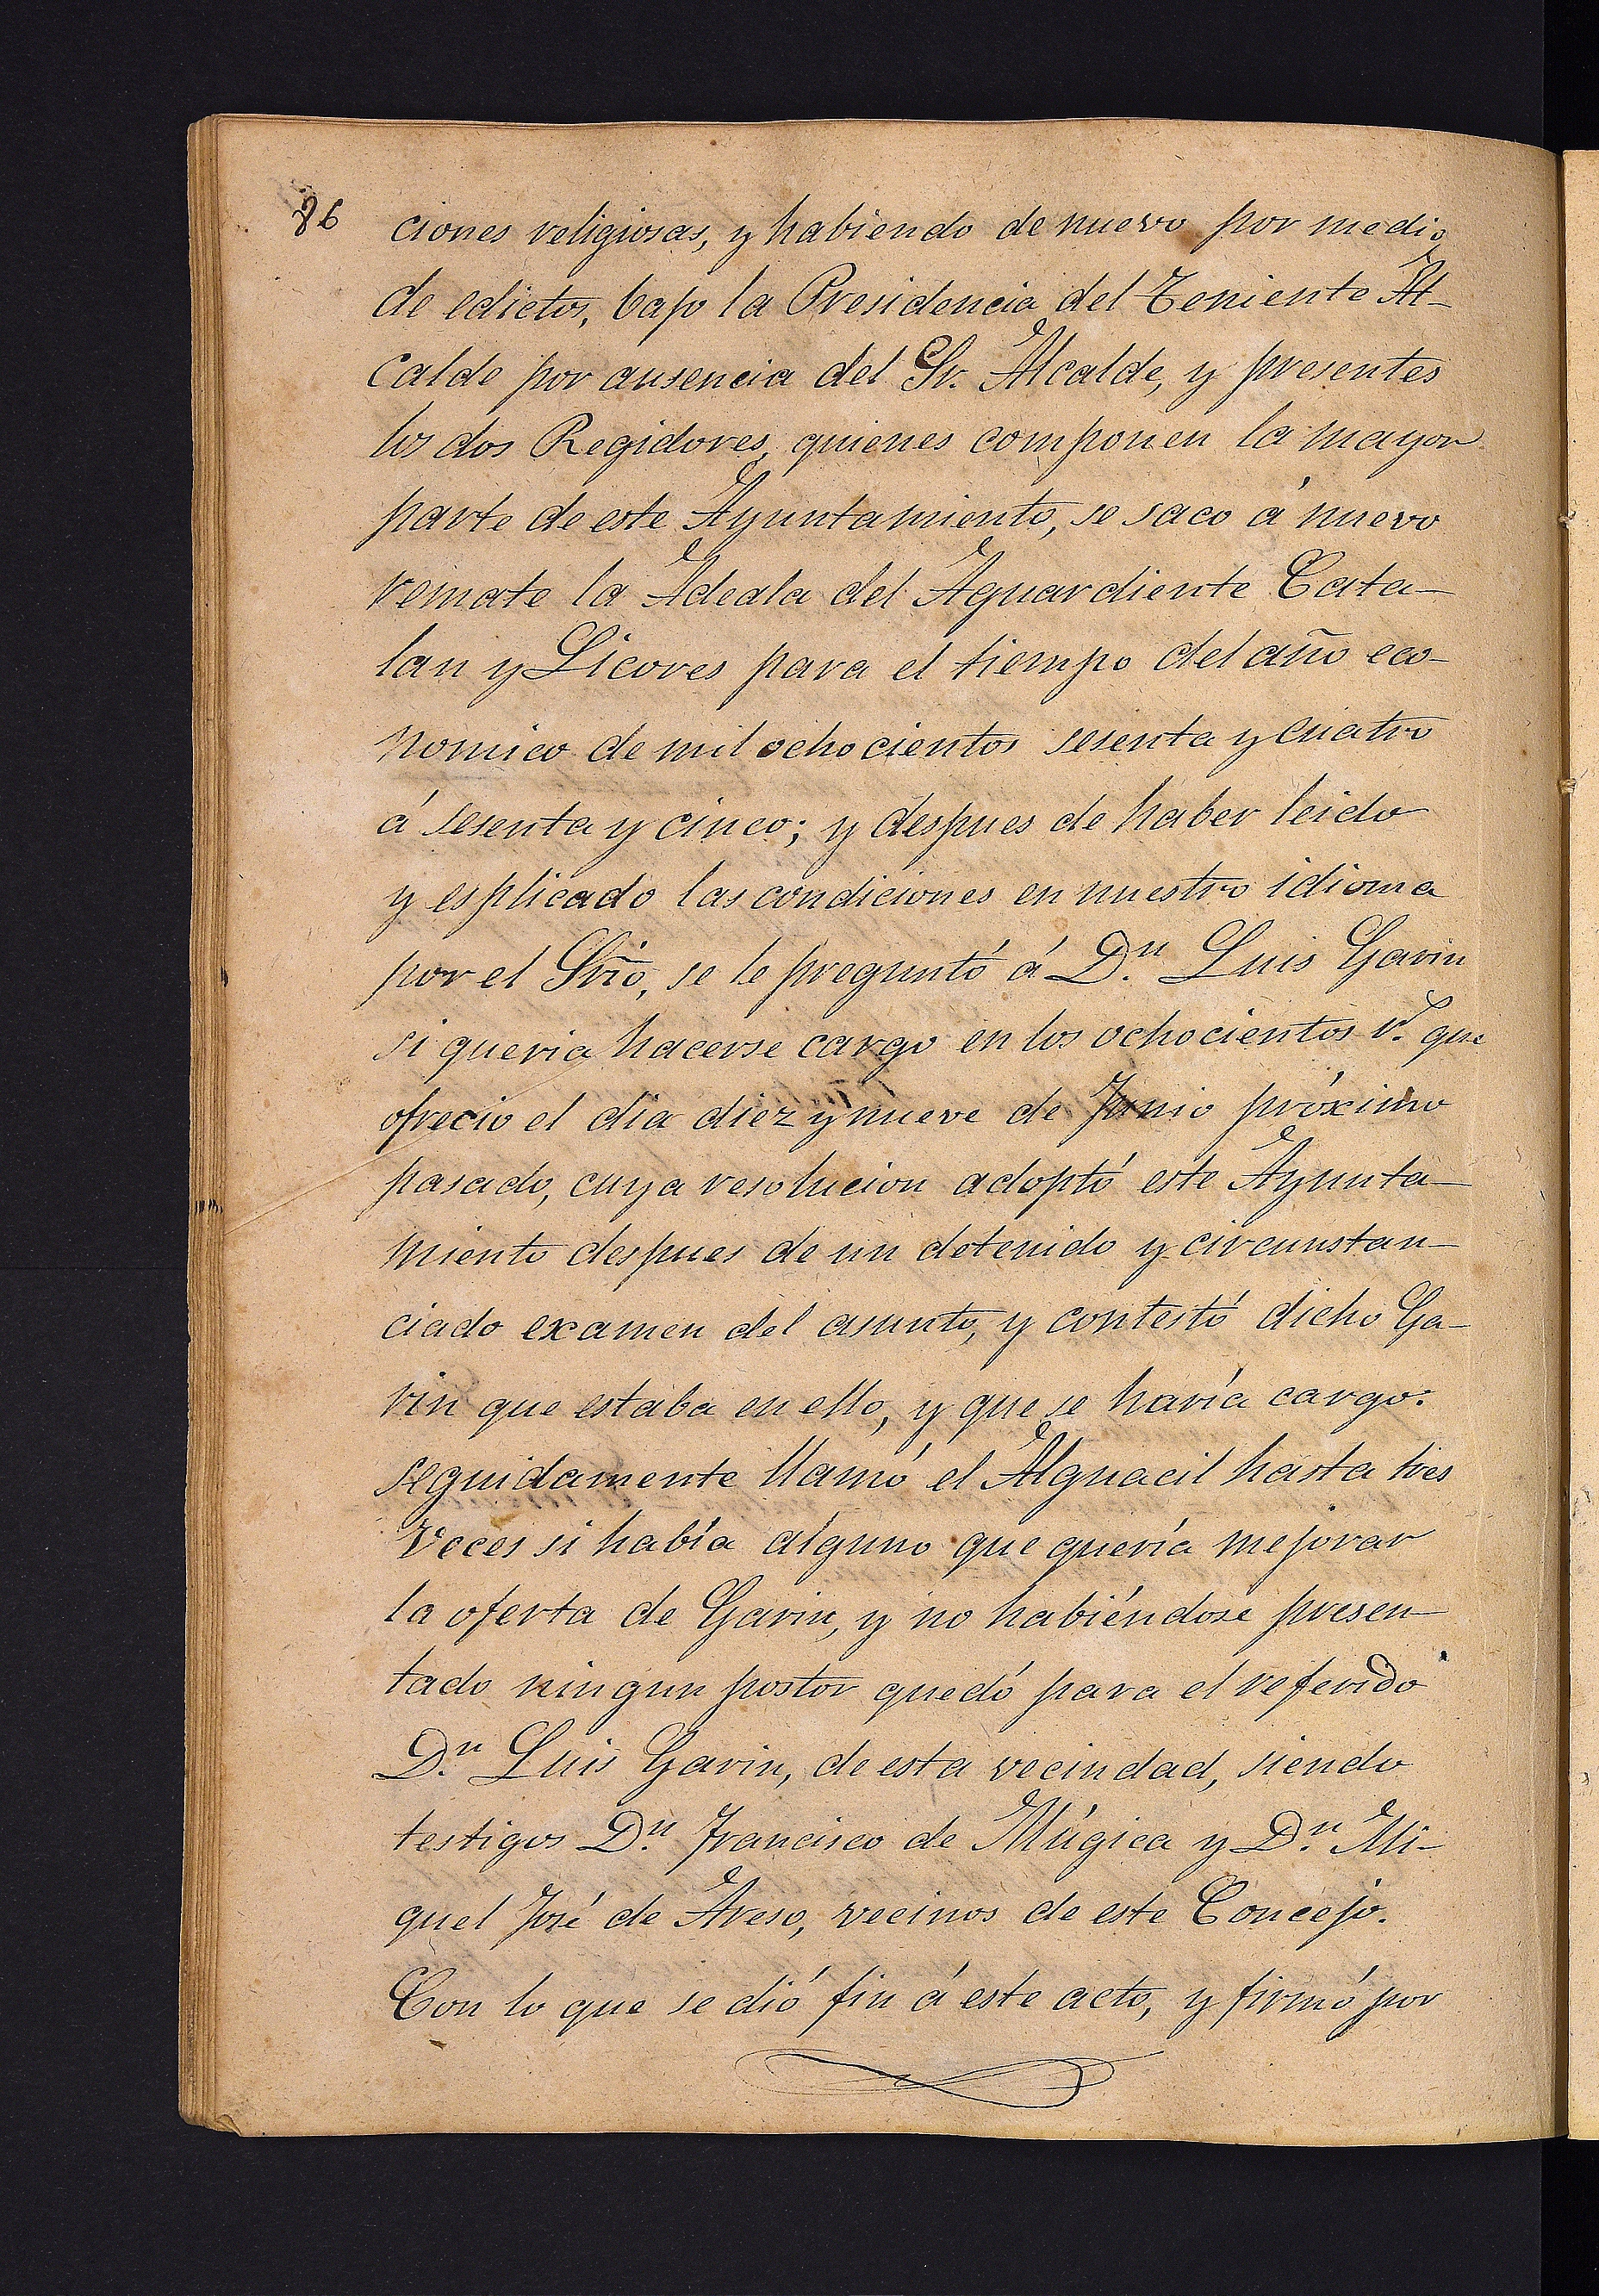 86
ciones religiosas, y habiendo de nuevo por medio
de edictos, bajo la Presidencia del Teniente Al-
calde por ausencia del Sr. Alcalde, y presentes
los dos Regidores, quienes componen la mayor
parte de este Ayuntamiento, se saco á nuevo
remate la Adeala del Aguardiente Cata-
lan y Licores para el tiempo del año eco-
nomico de mil ochocientos sesenta y cuatro
á sesenta y cinco; y despues de haber leido
y esplicado las condiciones en nuestro idioma
por el Srio, se le preguntó á Dn. Luis Garin
si queria hacerse cargo en los ochocientos rs. que
ofrecio el dia diez y nueve de Junio próximo
pasado, cuya resolucion adoptó este Ayunta-
miento despues de un detenido y circunstan-
ciado examen del asunto, y contestó dicho Ga-
rin que estaba en ello, y que se haría cargo:
seguidamente llamó el Alguacil hasta tres
veces si había alguno que quería mejorar
la oferta de Garin, y no habiéndose presen-
tado ningun postor quedó para el referido
Dn. Luis Garin, de esta vecindad, siendo
testigos Dn. Francisco de Múgica y Dn. Mi-
guel José de Areso, vecinos de este Concejo.
Con lo que se dió fin á este acto, y firmó por